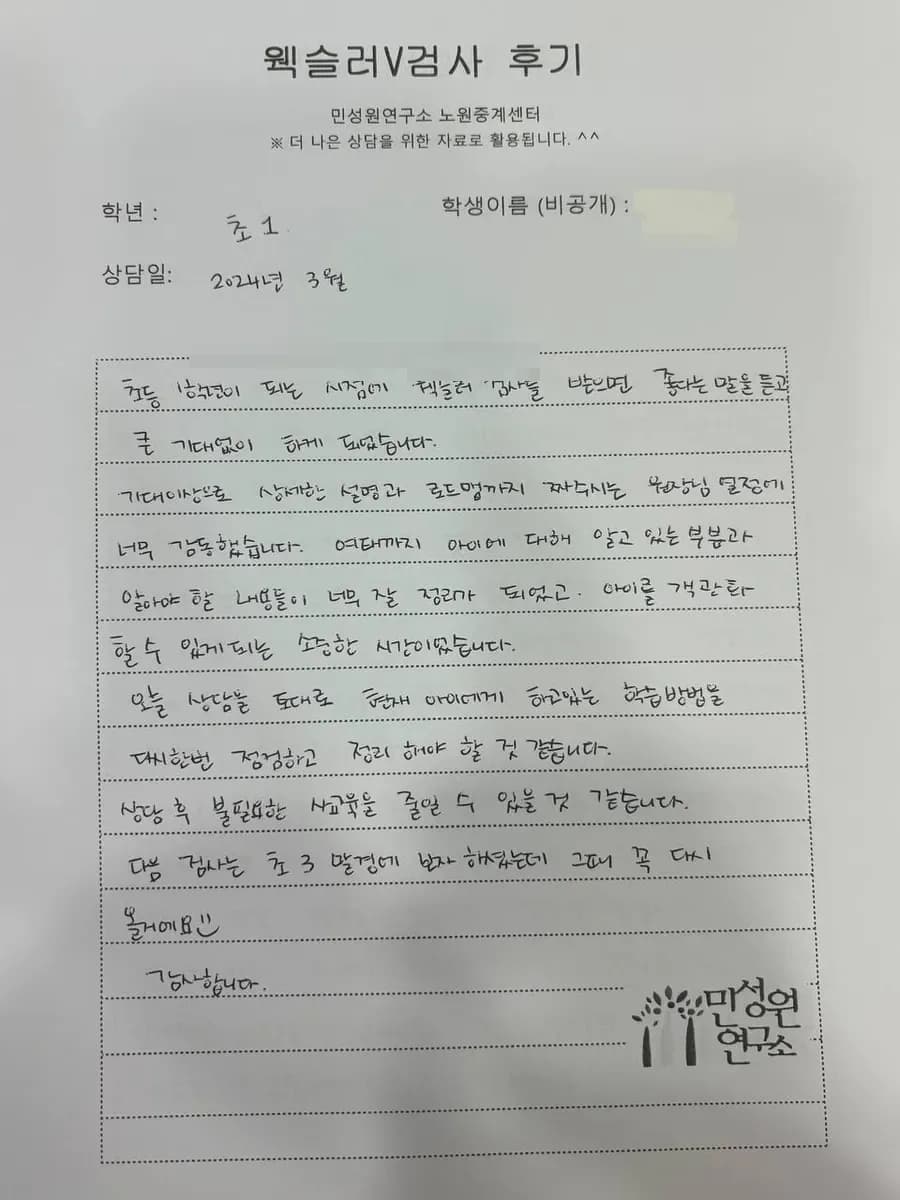 웩슬러V검사 후기
민성원연구소 노원중계센터
※ 더 나은 상담을 위한 자료로 활용됩니다. ^^
학년 : 초 1
학생이름 (비공개) :
상담일: 2024년 3월
초등 1학년이 되는 시점에 웩슬러 검사를 받으면 좋다는 말을 듣고
큰 기대없이 하게 되었습니다.
기대이상으로 상세한 설명과 로드맵까지 짜주시는 원장님 열정에
너무 감동했습니다. 여태까지 아이에 대해 알고 있는 부분과
알아야 할 내용들이 너무 잘 정리가 되었고. 아이를 객관화
할 수 있게되는 소중한 시간이었습니다.
오늘 상담을 토대로 현재 아이에게 하고있는 학습방법을
다시한번 점검하고 정리 해야 할 것 같습니다.
상담 후 불필요한 사교육을 줄일 수 있을 것 같습니다.
다음 검사는 초 3 말경에 보자 하셨는데 그때 꼭 다시
올거에요
감사합니다.
민성원
연구소